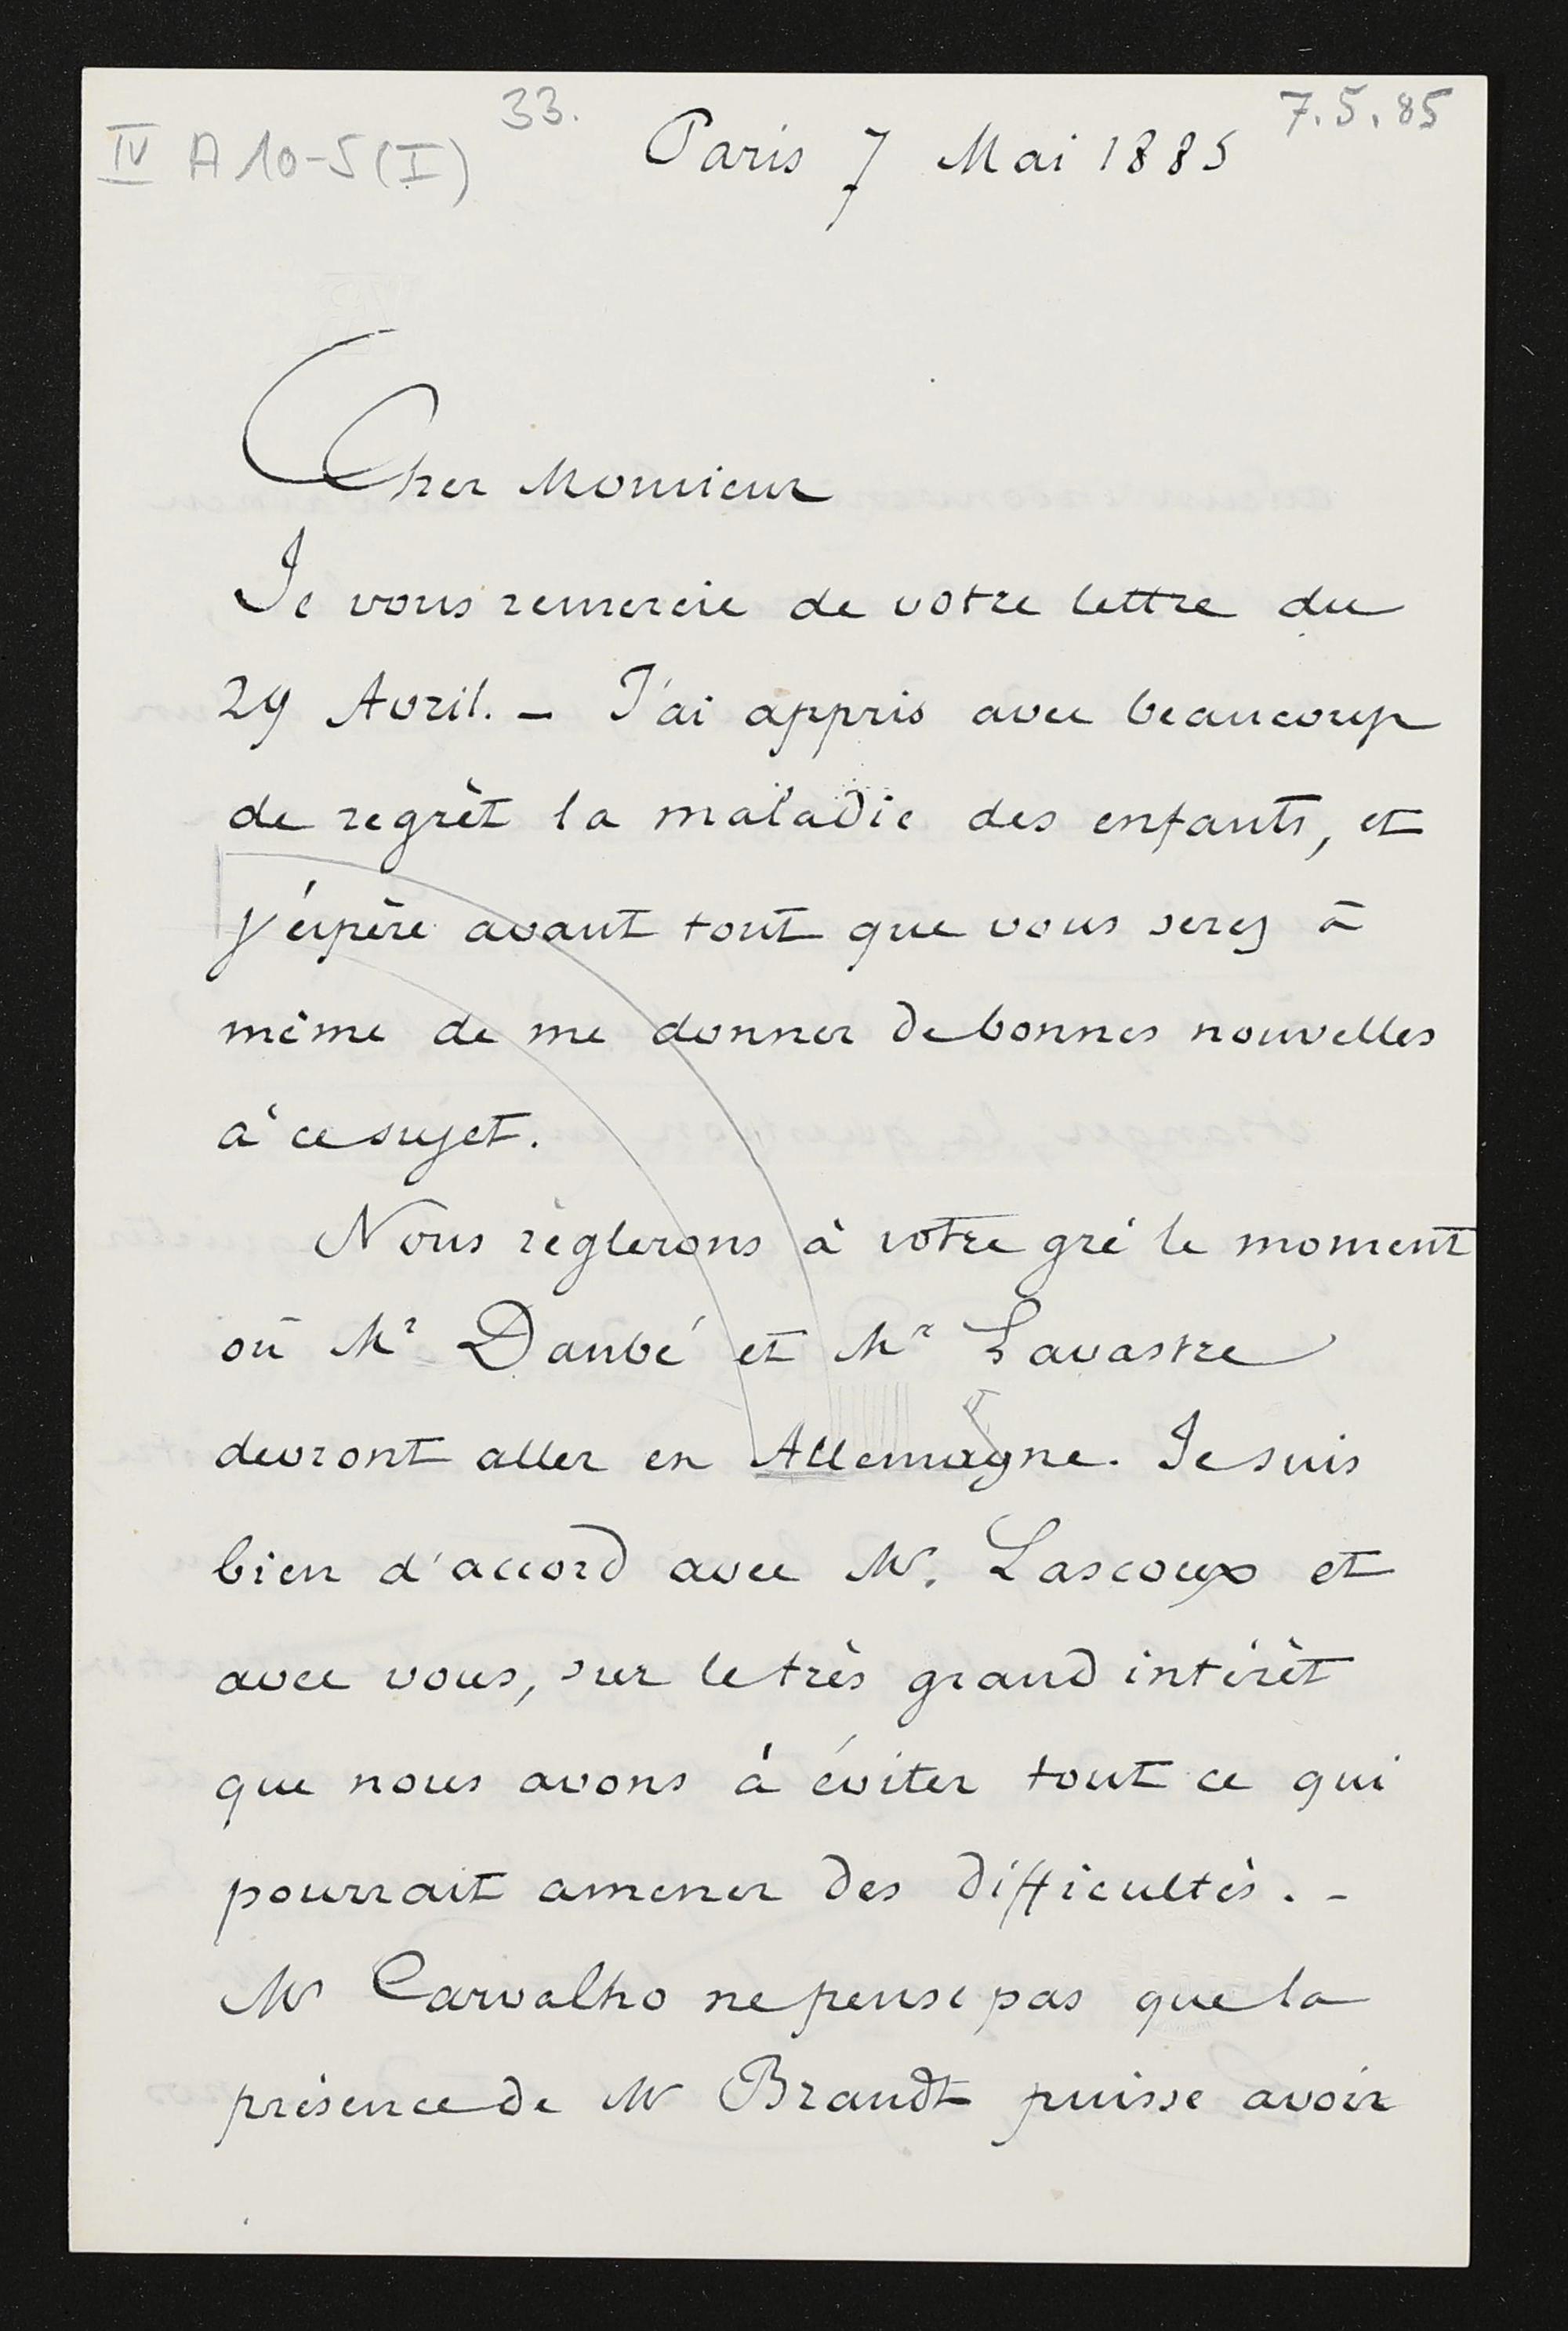 33.
7.5.85
IV A 10-5(I)
Paris 7 Mai 1885
Cher Monsieur
Je vous remercie de votre lettre du
29 Avril. – J'ai appris avec beaucoup
de regrèt la maladie des enfants, et
j'éspère avant tout que vous serez à
même de me donner de bonnes nouvelles
à ce sujet.
Nous règlerons à votre gré le moment
où Mr Danbé et Mr Lavastre
devront aller en Allemagne. Je suis
bien d'accord avec Mr. Lascoux et
avec vous, sur le très grand intérêt
que nous avons à éviter tout ce qui
pourrait amener des difficultés. –
Mr Carvalho ne pense pas que la
présence de Mr Brandt puisse avoir